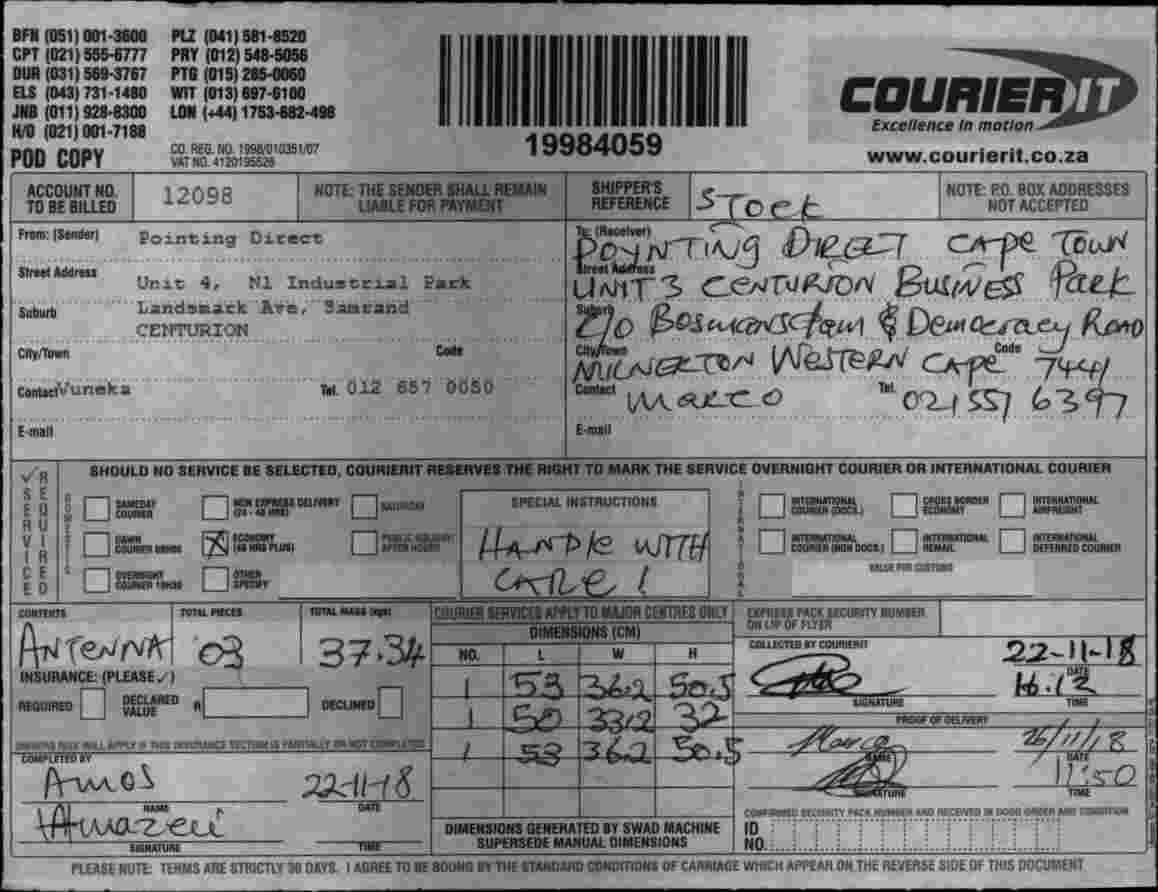 BFN (051) 001-3600 PLZ (041) 581-8520
CPT (021) 555-6777 PRY (012) 548-5056
DUR (031) 569-3767 PTG (015) 285-0060
ELS (043) 731-1480 WIT (013) 697-6100
JNB (011) 928-8300 LON (+44) 1753-682-498
H/O (021) 001-7188
POD COPY
CO. REG. NO. 1998/010351/07
VAT NO. 4120195526
19984059
COURIER IT
Excellence in motion
www.courierit.co.za
ACCOUNT NO. TO BE BILLED 12098
NOTE: THE SENDER SHALL REMAIN LIABLE FOR PAYMENT
SHIPPER'S REFERENCE STOCK
NOTE: P.O. BOX ADDRESSES NOT ACCEPTED
From: (Sender) Pointing Direct
Street Address Unit 4, N1 Industrial Park
Suburb Landsmack Ave, Samrand
CENTURION
City/Town Code
Contact Vuneka Tel. 012 657 0050
E-mail
To: (Receiver) POYNTING DIRECT CAPE TOWN
Street Address UNIT 3 CENTURION BUSINESS PARK
Suburb C/O Bosmansdam & Democracy ROAD
City/Town MILNERTON WESTERN CAPE Code 7441
Contact MARCO Tel. 021 551 6397
E-mail
SHOULD NO SERVICE BE SELECTED, COURIERIT RESERVES THE RIGHT TO MARK THE SERVICE OVERNIGHT COURIER OR INTERNATIONAL COURIER
✓ SERVICE REQUIRED
DOMESTIC
SAMEDAY COURIER
NON EXPRESS DELIVERY (24 - 48 HRS)
SATURDAY
DAWN COURIER
X ECONOMY (48 HRS PLUS)
PUBLIC HOLIDAY/ AFTER HOURS
OVERNIGHT COURIER 10H30
OTHER SPECIFY
SPECIAL INSTRUCTIONS
HANDLE WITH
CARE!
INTERNATIONAL
INTERNATIONAL COURIER (DOCS.)
CROSS BORDER ECONOMY
INTERNATIONAL AIRFREIGHT
INTERNATIONAL COURIER (NON DOCS.)
INTERNATIONAL REMAIL
INTERNATIONAL DEFERRED COURIER
VALUE FOR CUSTOMS
CONTENTS ANTENNA
TOTAL PIECES 03
TOTAL MASS (kgs) 37.34
INSURANCE: (PLEASE ✓)
REQUIRED DECLARED VALUE R DECLINED
OWNERS RISK WILL APPLY IF THIS INSURANCE SECTION IS PARTIALLY OR NOT COMPLETED
COMPLETED BY
Amos 22-11-18
NAME DATE
SIGNATURE TIME
COURIER SERVICES APPLY TO MAJOR CENTRES ONLY
DIMENSIONS (CM)
NO. L W H
1 53 36.2 50.5
1 50 33.2 32
1 53 36.2 50.5
DIMENSIONS GENERATED BY SWAD MACHINE
SUPERSEDE MANUAL DIMENSIONS
EXPRESS PACK SECURITY NUMBER
ON LIP OF FLYER
COLLECTED BY COURIERIT
22-11-18
DATE
16:12
SIGNATURE TIME
PROOF OF DELIVERY
Marco 26/11/18
NAME DATE
11:50
SIGNATURE TIME
CONFIRMED SECURITY PACK NUMBER AND RECEIVED IN GOOD ORDER AND CONDITION
ID NO.
PLEASE NOTE: TERMS ARE STRICTLY 30 DAYS. I AGREE TO BE BOUND BY THE STANDARD CONDITIONS OF CARRIAGE WHICH APPEAR ON THE REVERSE SIDE OF THIS DOCUMENT